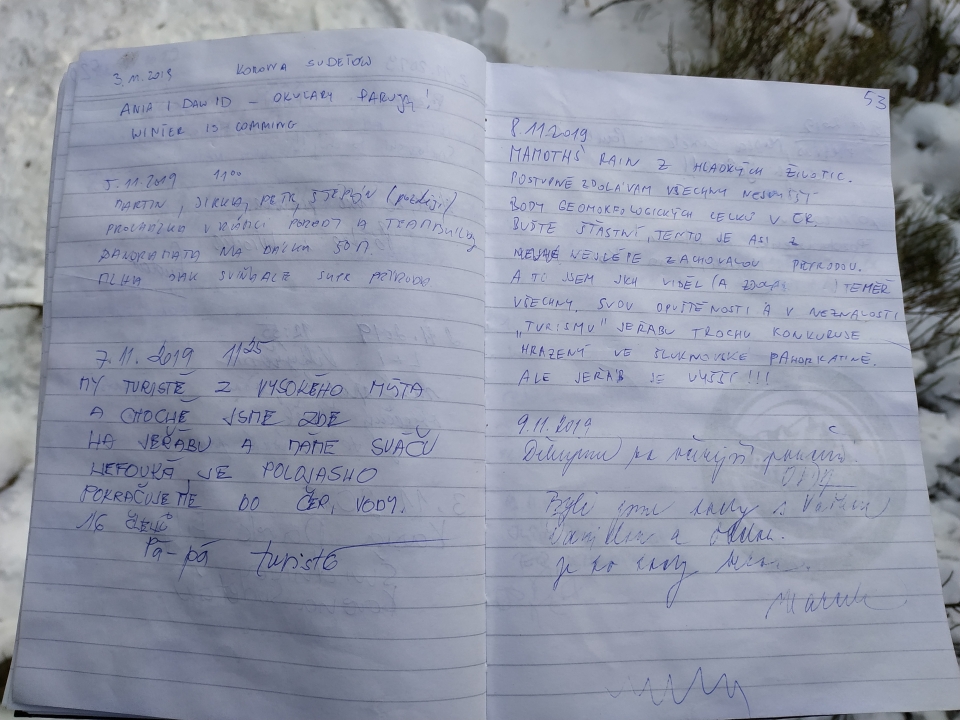 3. 11. 2019 KORONA SUDETÓW
ANIA I DAWID – OKULARY PARUJĄ!
WINTER IS COMMING
5. 11. 2019 11⁰⁰
MARTIN, JIRKA, PETR, ŠTĚPÁN
PROCHÁZKA V RÁMCI PORADY A TEAMBUILDING
PANORAMATA NA DÁLKU 50 M.
MLHA JAK SVIŇA ALE SUPR
7. 11. 2019 11²⁵
MY TURISTÉ Z VYSOKÉHO MÝTA
A CHOCNĚ JSME ZDE
NA JEŘÁBU A MÁME SVAČU
NEFOUKÁ, JE POLOJASNO
POKRAČUJEME DO ČER. VODY.
16 ČLENŮ
Pá-pá turisté
53
8. 11. 2019
MAMOTHS RAIN Z HLADKÝCH ŽIVOTIC.
POSTUPNĚ ZDOLÁVÁM VŠECHNY NEJVYŠŠÍ
BODY GEOMORFOLOGICKÝCH CELKŮ V ČR.
BUĎTE ŠŤASTNÍ, TENTO JE ASI Z
NEJLÉPE ZACHOVALOU PŘÍRODOU.
A TO JSEM JICH VIDĚL (A ) TÉMĚŘ
VŠECHNY. SVOU OPUŠTĚNOSTÍ A V NEZNALOSTI
„TURISMU" JEŘÁBU TROCHU KONKURUJE
HRAZENÝ VE ŠLUKNOVSKÉ PAHORKATINĚ.
ALE JEŘÁB JE VYŠŠÍ!!!
9. 11. 2019
Děkujeme za
Byli jsme tady s
a
je to tady